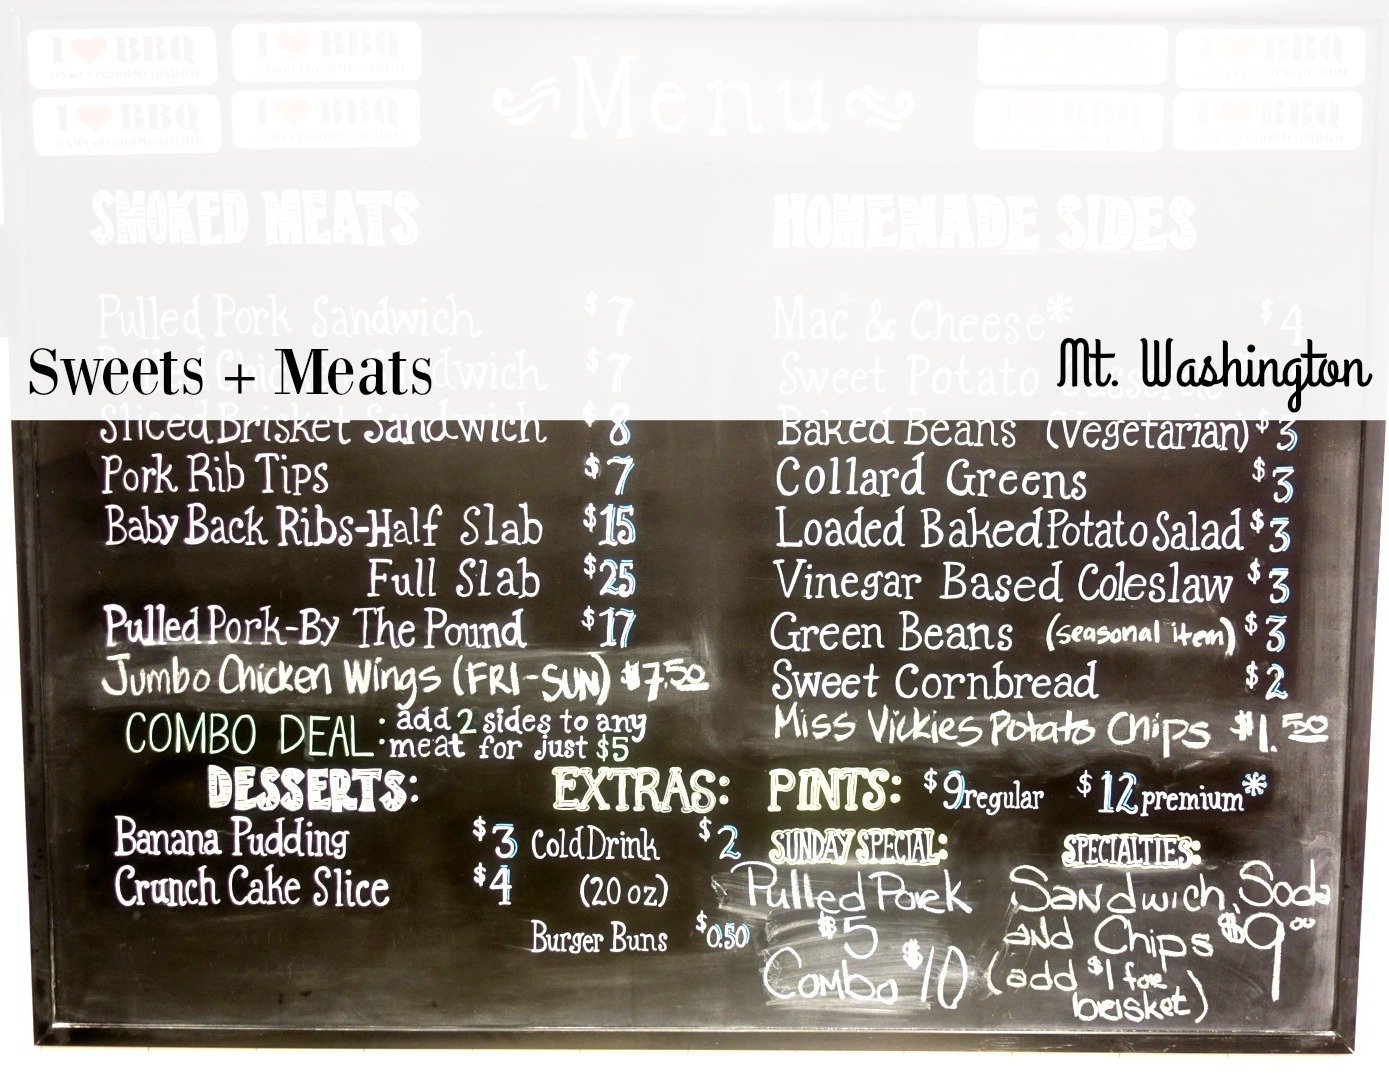 I ❤ BBQ
@SweetsandMeatsBBQ
I ❤ BBQ
@SweetsandMeatsBBQ
I ❤ BBQ
@SweetsandMeatsBBQ
I ❤ BBQ
@SweetsandMeatsBBQ
Menu
I ❤ BBQ
I ❤ BBQ
@SweetsandMeatsBBQ
I ❤ BBQ
@SweetsandMeatsBBQ
I ❤ BBQ
@SweetsandMeatsBBQ
SMOKED MEATS
Pulled Pork Sandwich $7
Sandwich $7
Sweets + Meats
Sliced Brisket Sandwich $8
Pork Rib Tips $7
Baby Back Ribs-Half Slab $15
Full Slab $25
Pulled Pork-By The Pound $17
Jumbo Chicken Wings (FRI-SUN) $7.50
COMBO DEAL: add 2 sides to any
meat for just $5
HOMEMADE SIDES
Mac & Cheese* $4
Sweet Potato
Mt. Washington
Baked Beans (Vegetarian) $3
Collard Greens $3
Loaded Baked Potato Salad $3
Vinegar Based Coleslaw $3
Green Beans (seasonal item) $3
Sweet Cornbread $2
Miss Vickies Potato Chips $1.50
DESSERTS:
Banana Pudding $3
Crunch Cake Slice $4
EXTRAS:
Cold Drink $2
(20 oz)
Burger Buns $0.50
PINTS: $9 regular $12 premium*
SUNDAY SPECIAL:
Pulled Pork
$5
Combo $10
SPECIALTIES:
Sandwich, Soda
and Chips $9.00
(add $1 for
brisket)